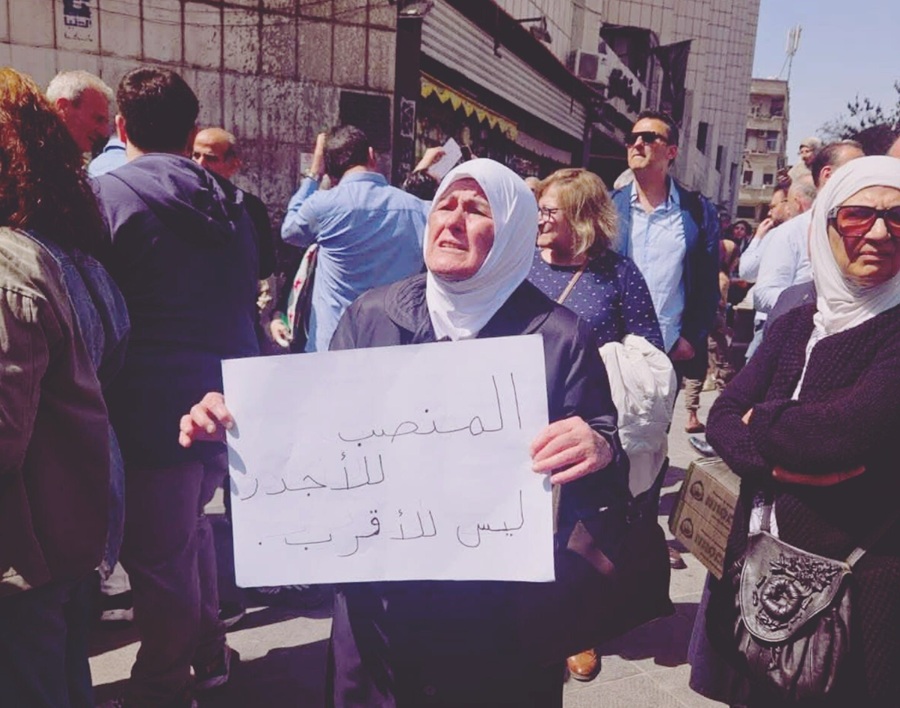 المنصب
للأجدر
ليس للأقرب .